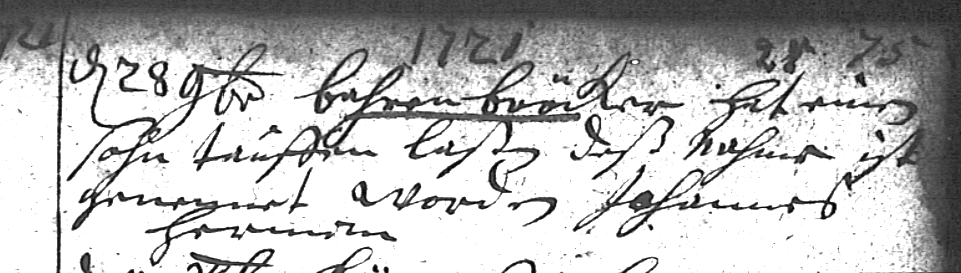 1721 28 75
d 28 9br bahrenbröcker hat einen
sohn tauffen laßen deß Nahme ist
genennet worden Johannes
Hermann